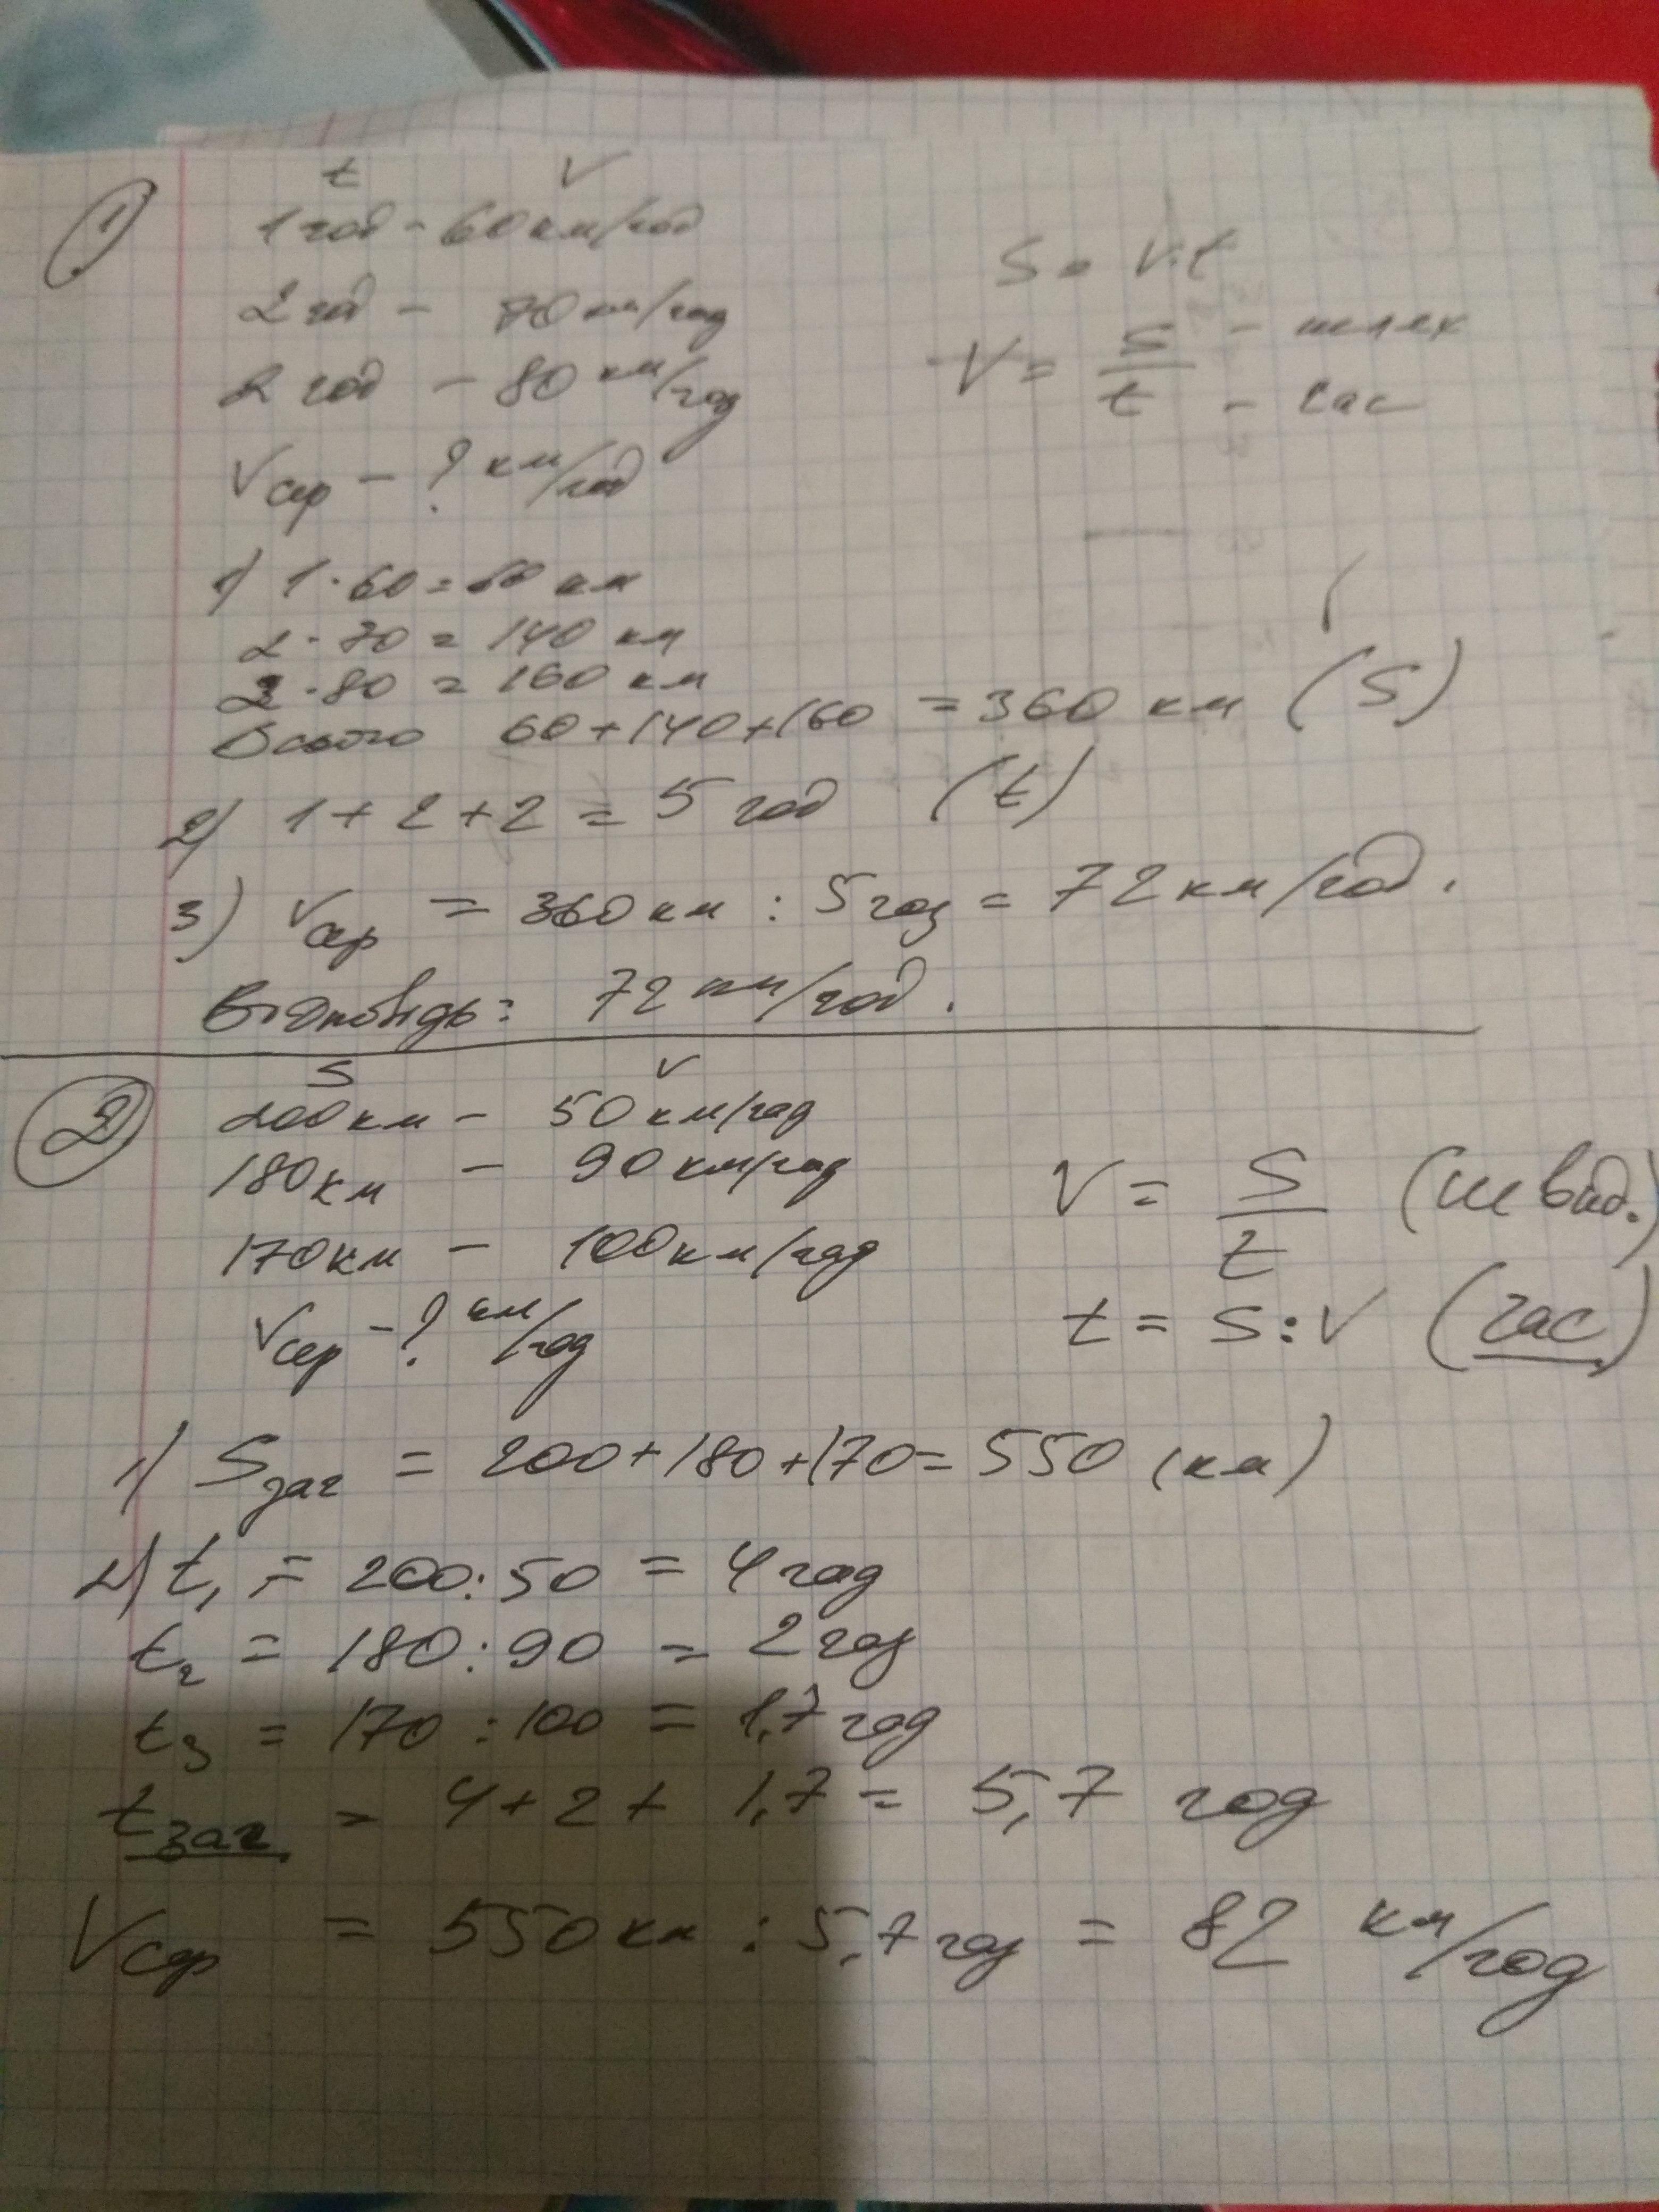 1
t V
1 год - 60 км/год
2 год - 70 км/год
2 год - 80 км/год
Vсер - ? км/год
S = V·t
V = S/t - шлях
- час
1) 1·60 = 60 км
2·70 = 140 км
2·80 = 160 км
Всього 60+140+160 = 360 км (S)
2) 1+2+2 = 5 год (t)
3) Vсер = 360 км : 5 год = 72 км/год.
Відповідь: 72 км/год.
2
S V
200 км - 50 км/год
180 км - 90 км/год
170 км - 100 км/год
Vсер - ? км/год
V = S/t (швид.)
t = S:V (час)
1) Sзаг = 200+180+170 = 550 (км)
2) t1 = 200:50 = 4 год
t2 = 180:90 = 2 год
t3 = 170:100 = 1,7 год
tзаг = 4+2+1,7 = 5,7 год
Vсер = 550 км : 5,7 год = 82 км/год